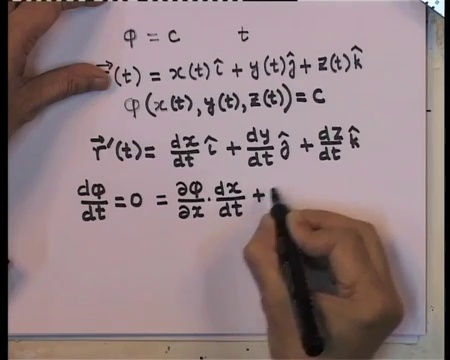 φ = c t
r⃗(t) = x(t) î + y(t) ĵ + z(t) k̂
φ(x(t), y(t), z(t)) = c
r⃗'(t) = dx/dt î + dy/dt ĵ + dz/dt k̂
dφ/dt = 0 = ∂φ/∂x · dx/dt +